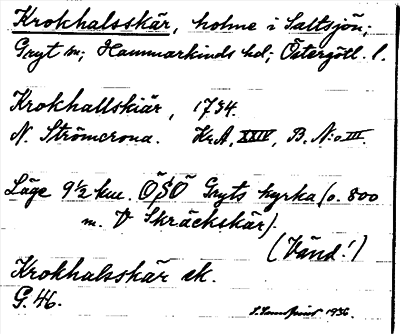 Krokhalsskär, holme i Saltsjön;
Gryt sn; Hammarkinds hd; Östergötl. l.
Krokhallskiär, 1734.
N. Strömcrona. Kr.A, XXIV, B. N:o III.
Läge 9 1/2 km. ÖSÖ Gryts kyrka (o. 800
m. V Skräckskär).
(Vänd!)
Krokhalsskär ek.
G. 46.
1936.